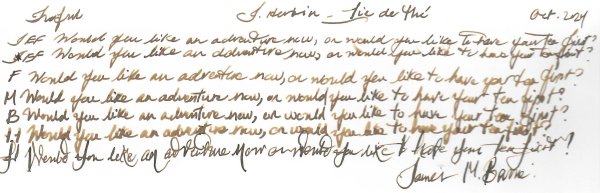 J. Herbin - Lie de Thé Oct. 2024
EF Would you like an adventure now, or would you like to have your tea first?
EF Would you like an adventure now, or would you like to have your tea first?
F Would you like an adventure now, or would you like to have your tea first?
M Would you like an adventure now, or would you like to have your tea first?
B Would you like an adventure now, or would you like to have your tea first?
1.1 Would you like an adventure now, or would you like to have your tea first?
Would you like an adventure now or would you like to have your tea first?
James M. Barrie